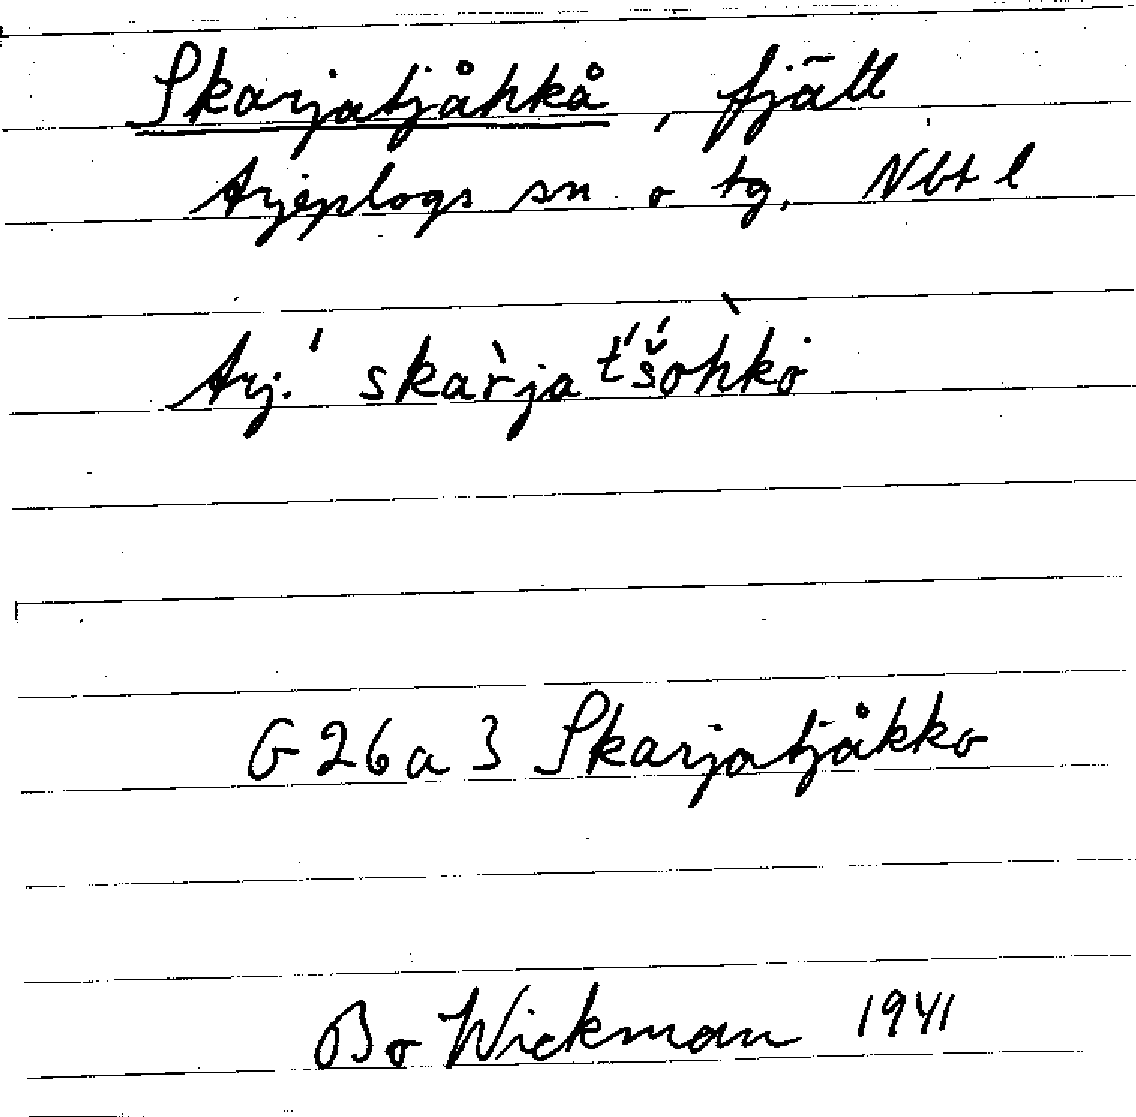 Skarjatjåhkå, fjäll
Arjeplogs sn o tg. Nbt l
Arj. ˈskaˋrja ˈt́šoˋhko
G 26 a 3 Skarjatjåkko
Bo Wickman 1941